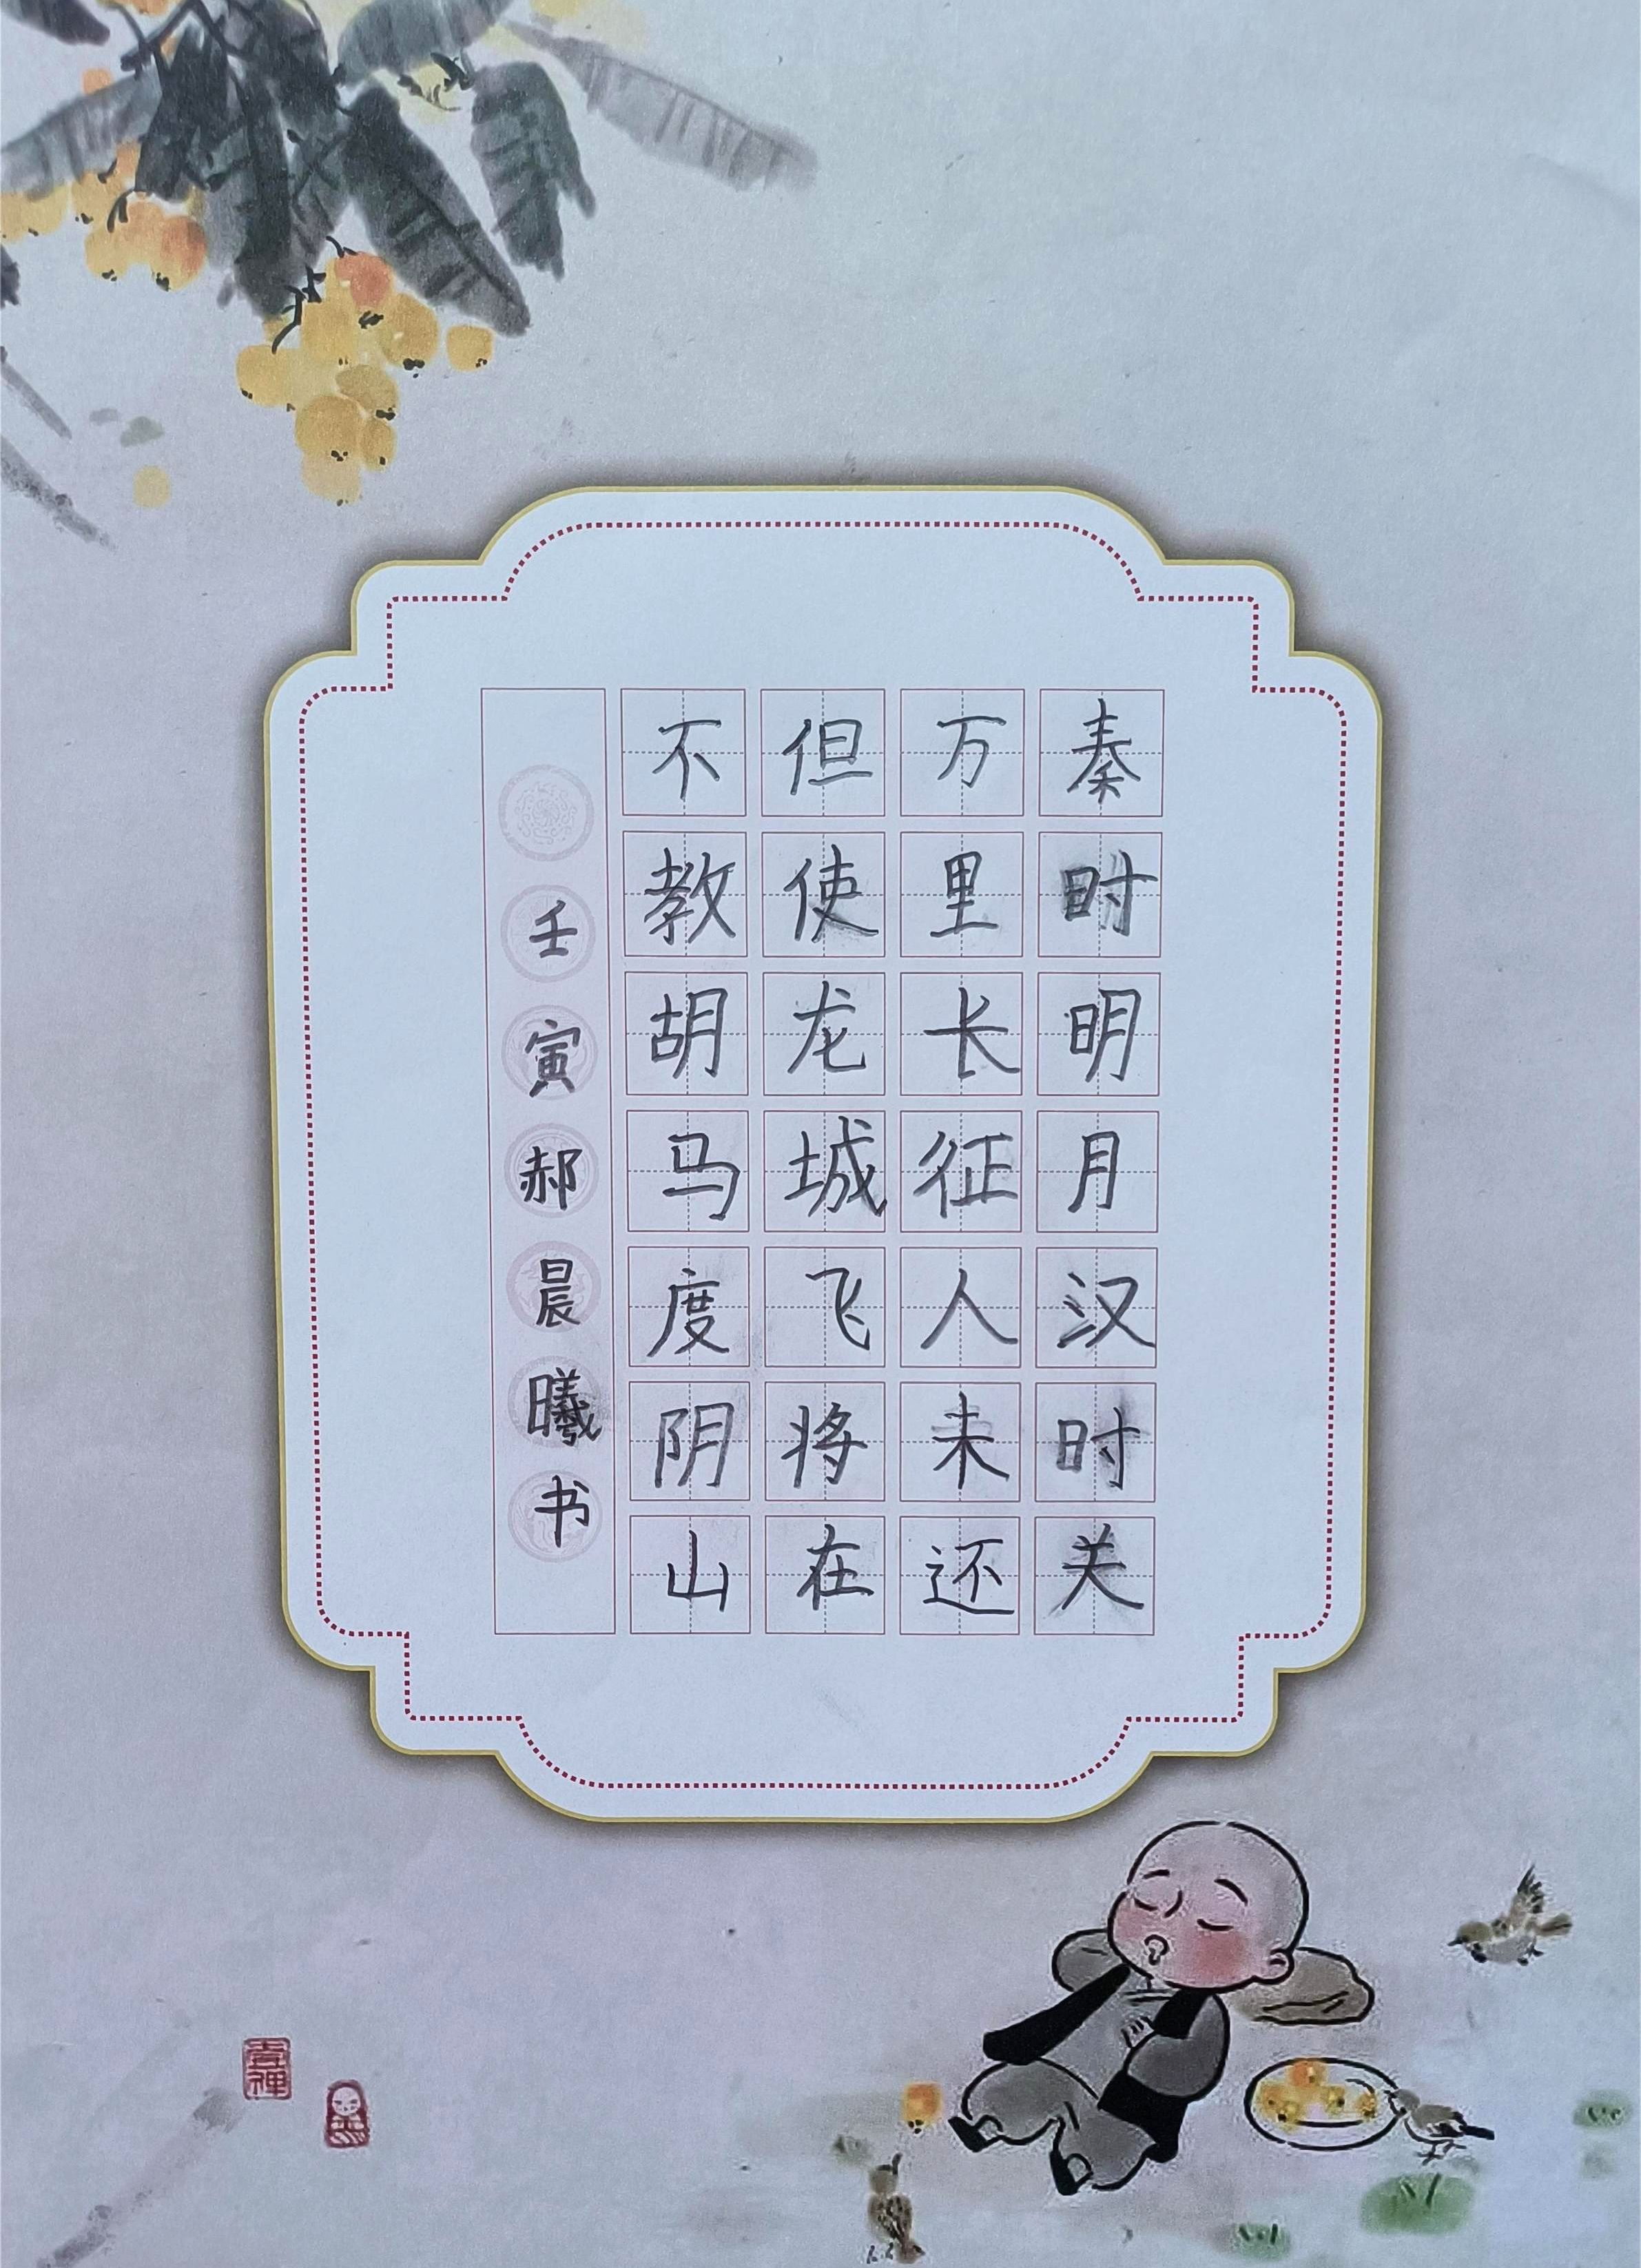 秦时明月汉时关
万里长征人未还
但使龙城飞将在
不教胡马度阴山
壬寅郝晨曦书